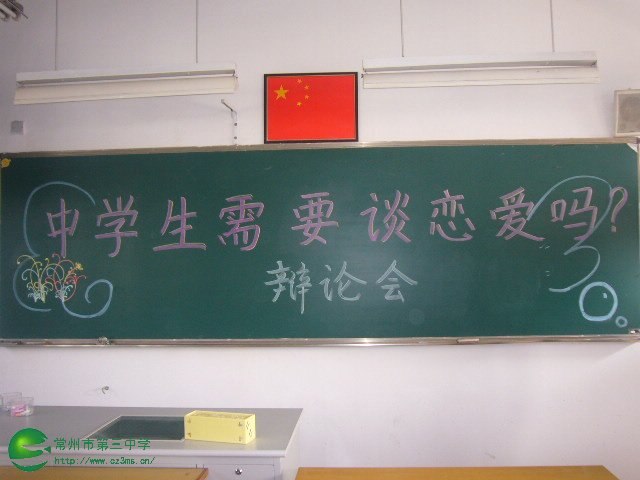 中学生需要谈恋爱吗?
辩论会
常州市第三中学
http://www.cz3ms.cn/